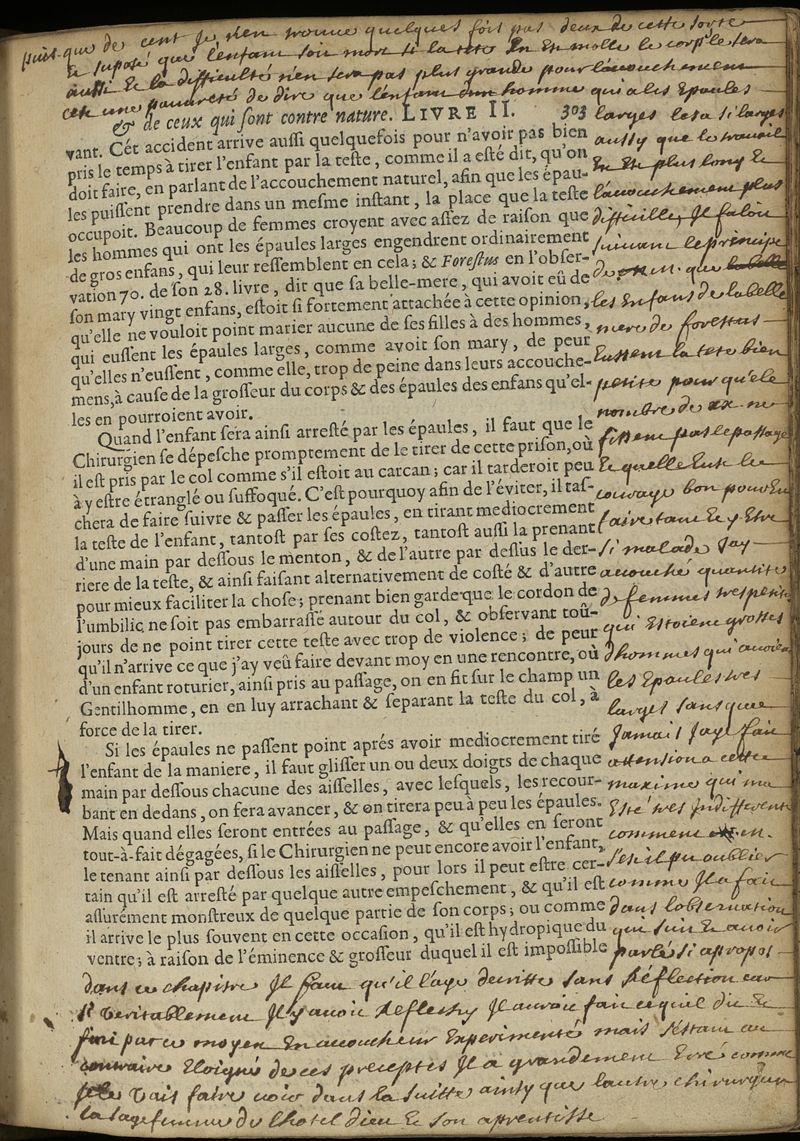 puis que de cent Je n'en trouve quelques fois pas deux de cette sorte
et suposé que l'enfant soit mort si la tete En Est molle le corps le sera
aussi Et la difficulté n'en sera pas plus grande pour l'acouchement
cest une pauvreté de dire que l'enfant dun homme qui a les Epaules
& de ceux qui ſont contre nature. LIVRE II. 303
vant. Cét accident arrive auſſi quelquefois pour n'avoir pas bien
pris le temps à tirer l'enfant par la teſte, comme il a eſté dit, qu'on
doit faire, en parlant de l'accouchement naturel, afin que les épau-
les puiſſent prendre dans un meſme inſtant, la place que la teſte
occupoit. Beaucoup de femmes croyent avec aſſez de raiſon que
les hommes qui ont les épaules larges engendrent ordinairement
de gros enfans, qui leur reſſemblent en cela; & Foreſtus en l'obſer-
vation 70. de ſon 28. livre, dit que ſa belle-mere, qui avoit eû de
ſon mary vingt enfans, eſtoit ſi fortement attachée à cette opinion,
qu'elle ne vouloit point marier aucune de ſes filles à des hommes,
qui euſſent les épaules larges, comme avoit ſon mary, de peur
qu'elles n'euſſent, comme elle, trop de peine dans leurs accouche-
mens, à cauſe de la groſſeur du corps & des épaules des enfans qu'el-
les en pourroient avoir.
Quand l'enfant ſera ainſi arreſté par les épaules, il faut que le
Chirurgien ſe dépeſche promptement de le tirer de cette priſon, où
il eſt pris par le col comme s'il eſtoit au carcan; car il tarderoit peu
à y eſtre étranglé ou ſuffoqué. C'eſt pourquoy afin de l'éviter, il taſ-
chera de faire ſuivre & paſſer les épaules, en tirant mediocrement
la teſte de l'enfant, tantoſt par ſes coſtez, tantoſt auſſi la prenant
d'une main par deſſous le menton, & de l'autre par deſſus le der-
riere de la teſte, & ainſi faiſant alternativement de coſté & d'autre
pour mieux faciliter la choſe; prenant bien garde que le cordon de
l'umbilic ne ſoit pas embarraſſé autour du col, & obſervant toû-
jours de ne point tirer cette teſte avec trop de violence; de peur
qu'il n'arrive ce que j'ay veû faire devant moy en une rencontre, où
d'un enfant roturier, ainſi pris au paſſage, on en fit ſur le champ un
Gentilhomme, en en luy arrachant & ſeparant la teſte du col, à
force de la tirer.
Si les épaules ne paſſent point aprés avoir mediocrement tiré
l'enfant de la maniere, il faut gliſſer un ou deux doigts de chaque
main par deſſous chacune des aiſſelles, avec leſquels, les recour-
bant en dedans, on fera avancer, & on tirera peu à peu les épaules.
Mais quand elles ſeront entrées au paſſage, & qu'elles en ſeront
tout-à-fait dégagées, ſi le Chirurgien ne peut encore avoir l'enfant,
le tenant ainſi par deſſous les aiſſelles, pour lors il peut eſtre cer-
tain qu'il eſt arreſté par quelque autre empeſchement, & qu'il eſt
aſſurément monſtreux de quelque partie de ſon corps; ou comme
il arrive le plus ſouvent en cette occaſion, qu'il eſt hydropique du
ventre; à raiſon de l'éminence & groſſeur duquel il eſt impoſſible
larges les a si larges
aussy que le travail
En Est plus long Et
l'acouchement plus
difficille, Il faloit
suivant le principe
de m. que
les Enfans de la belle
mere de forestus
Eussent la tete bien
petite pour qu'ele
nombre de xx ne
fissent pas le passage
Et quelle Eust le
courage bon pour En
faire tant Et y Etre
si malade Jay
acouché quantité
de femmes tres petites
qui Estoient grosses
dhommes qui avoient
les Epaules tres
larges sans que
Jamais Jaye fait
attention a cette
maxime qui ma
Esté tres Indifferente
comment m.
s'est il pu oublier
comme Il a fait
dans lobservation
qui suit Et avoir
parlé si apropos
dans ce chapitre Il faut qu'il l'aye decritte sans Réflection car
si veritablement Il y avoit Reflechy Il auroit fait ce quil dit Et
fini par ce moyen En acoucheur Experimenté mais s'Estant au
contraire Eloigné de ces preceptes Il a grandement Erré comme
Je le vais faire voir dans la suitte ainsy que lautre chirurgien
la sage femme de lhotel dieu Et son aprentisse